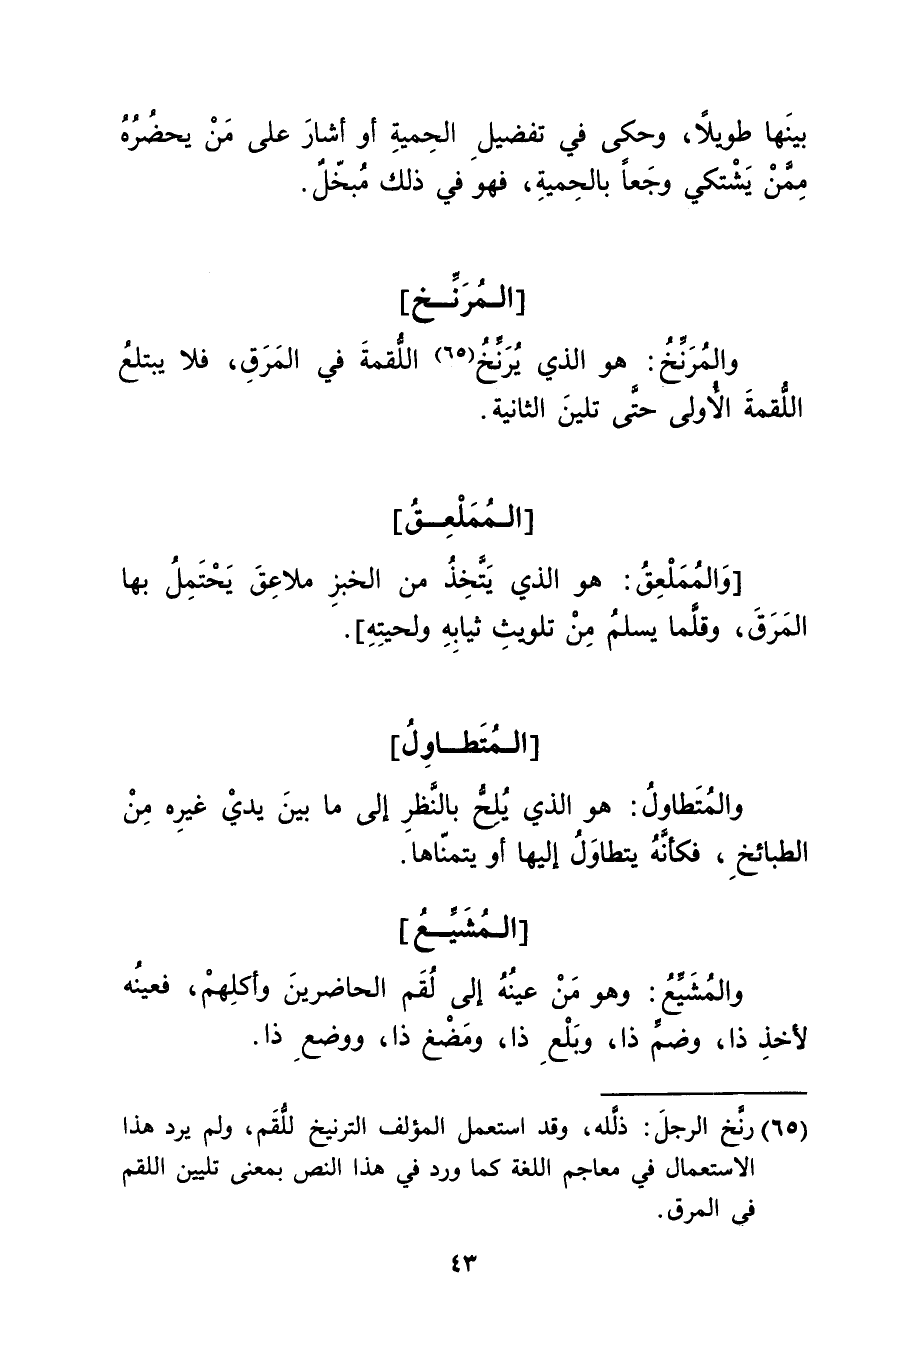 بينَها طويلاً، وحكى في تفضيلِ الحِميةِ أو أشارَ على مَنْ يحضُرُهُ
مِمَّنْ يَشْتكي وجَعاً بالحِميةِ، فهو في ذلك مُبخّلٌ.
[الـمُرَنِّـخ]
والمُرَنِّخُ: هو الذي يُرَنِّخُ(٦٥) اللُّقمةَ في المَرَقِ، فلا يبتلعُ
اللُّقمةَ الأُولى حتَّى تلينَ الثانية.
[الـمُمَلْعِـقُ]
[وَالمُمَلْعِقُ: هو الذي يَتَّخِذُ من الخبزِ ملاعِقَ يَحْتَمِلُ بها
المَرَقَ، وقلَّما يسلمُ مِنْ تلويثِ ثيابِهِ ولحيتِهِ].
[الـمُتَطـاوِلُ]
والمُتَطاولُ: هو الذي يُلِحُّ بالنَّظرِ إلى ما بينَ يديْ غيرِه مِنْ
الطبائخِ، فكأنَّهُ يتطاوَلُ إليها أو يتمنّاها.
[الـمُشَيِّـعُ]
والمُشَيِّعُ: وهو مَنْ عينُهُ إلى لُقَمِ الحاضرينَ وأكلِهِمْ، فعينُه
لأخذِ ذا، وضمِّ ذا، وبَلْعِ ذا، ومَضْغِ ذا، ووضعِ ذا.
(٦٥) رنَّخ الرجلَ: ذلَّله، وقد استعمل المؤلف الترنيخ للُّقَم، ولم يرد هذا
الاستعمال في معاجم اللغة كما ورد في هذا النص بمعنى تليين اللقم
في المرق.
٤٣